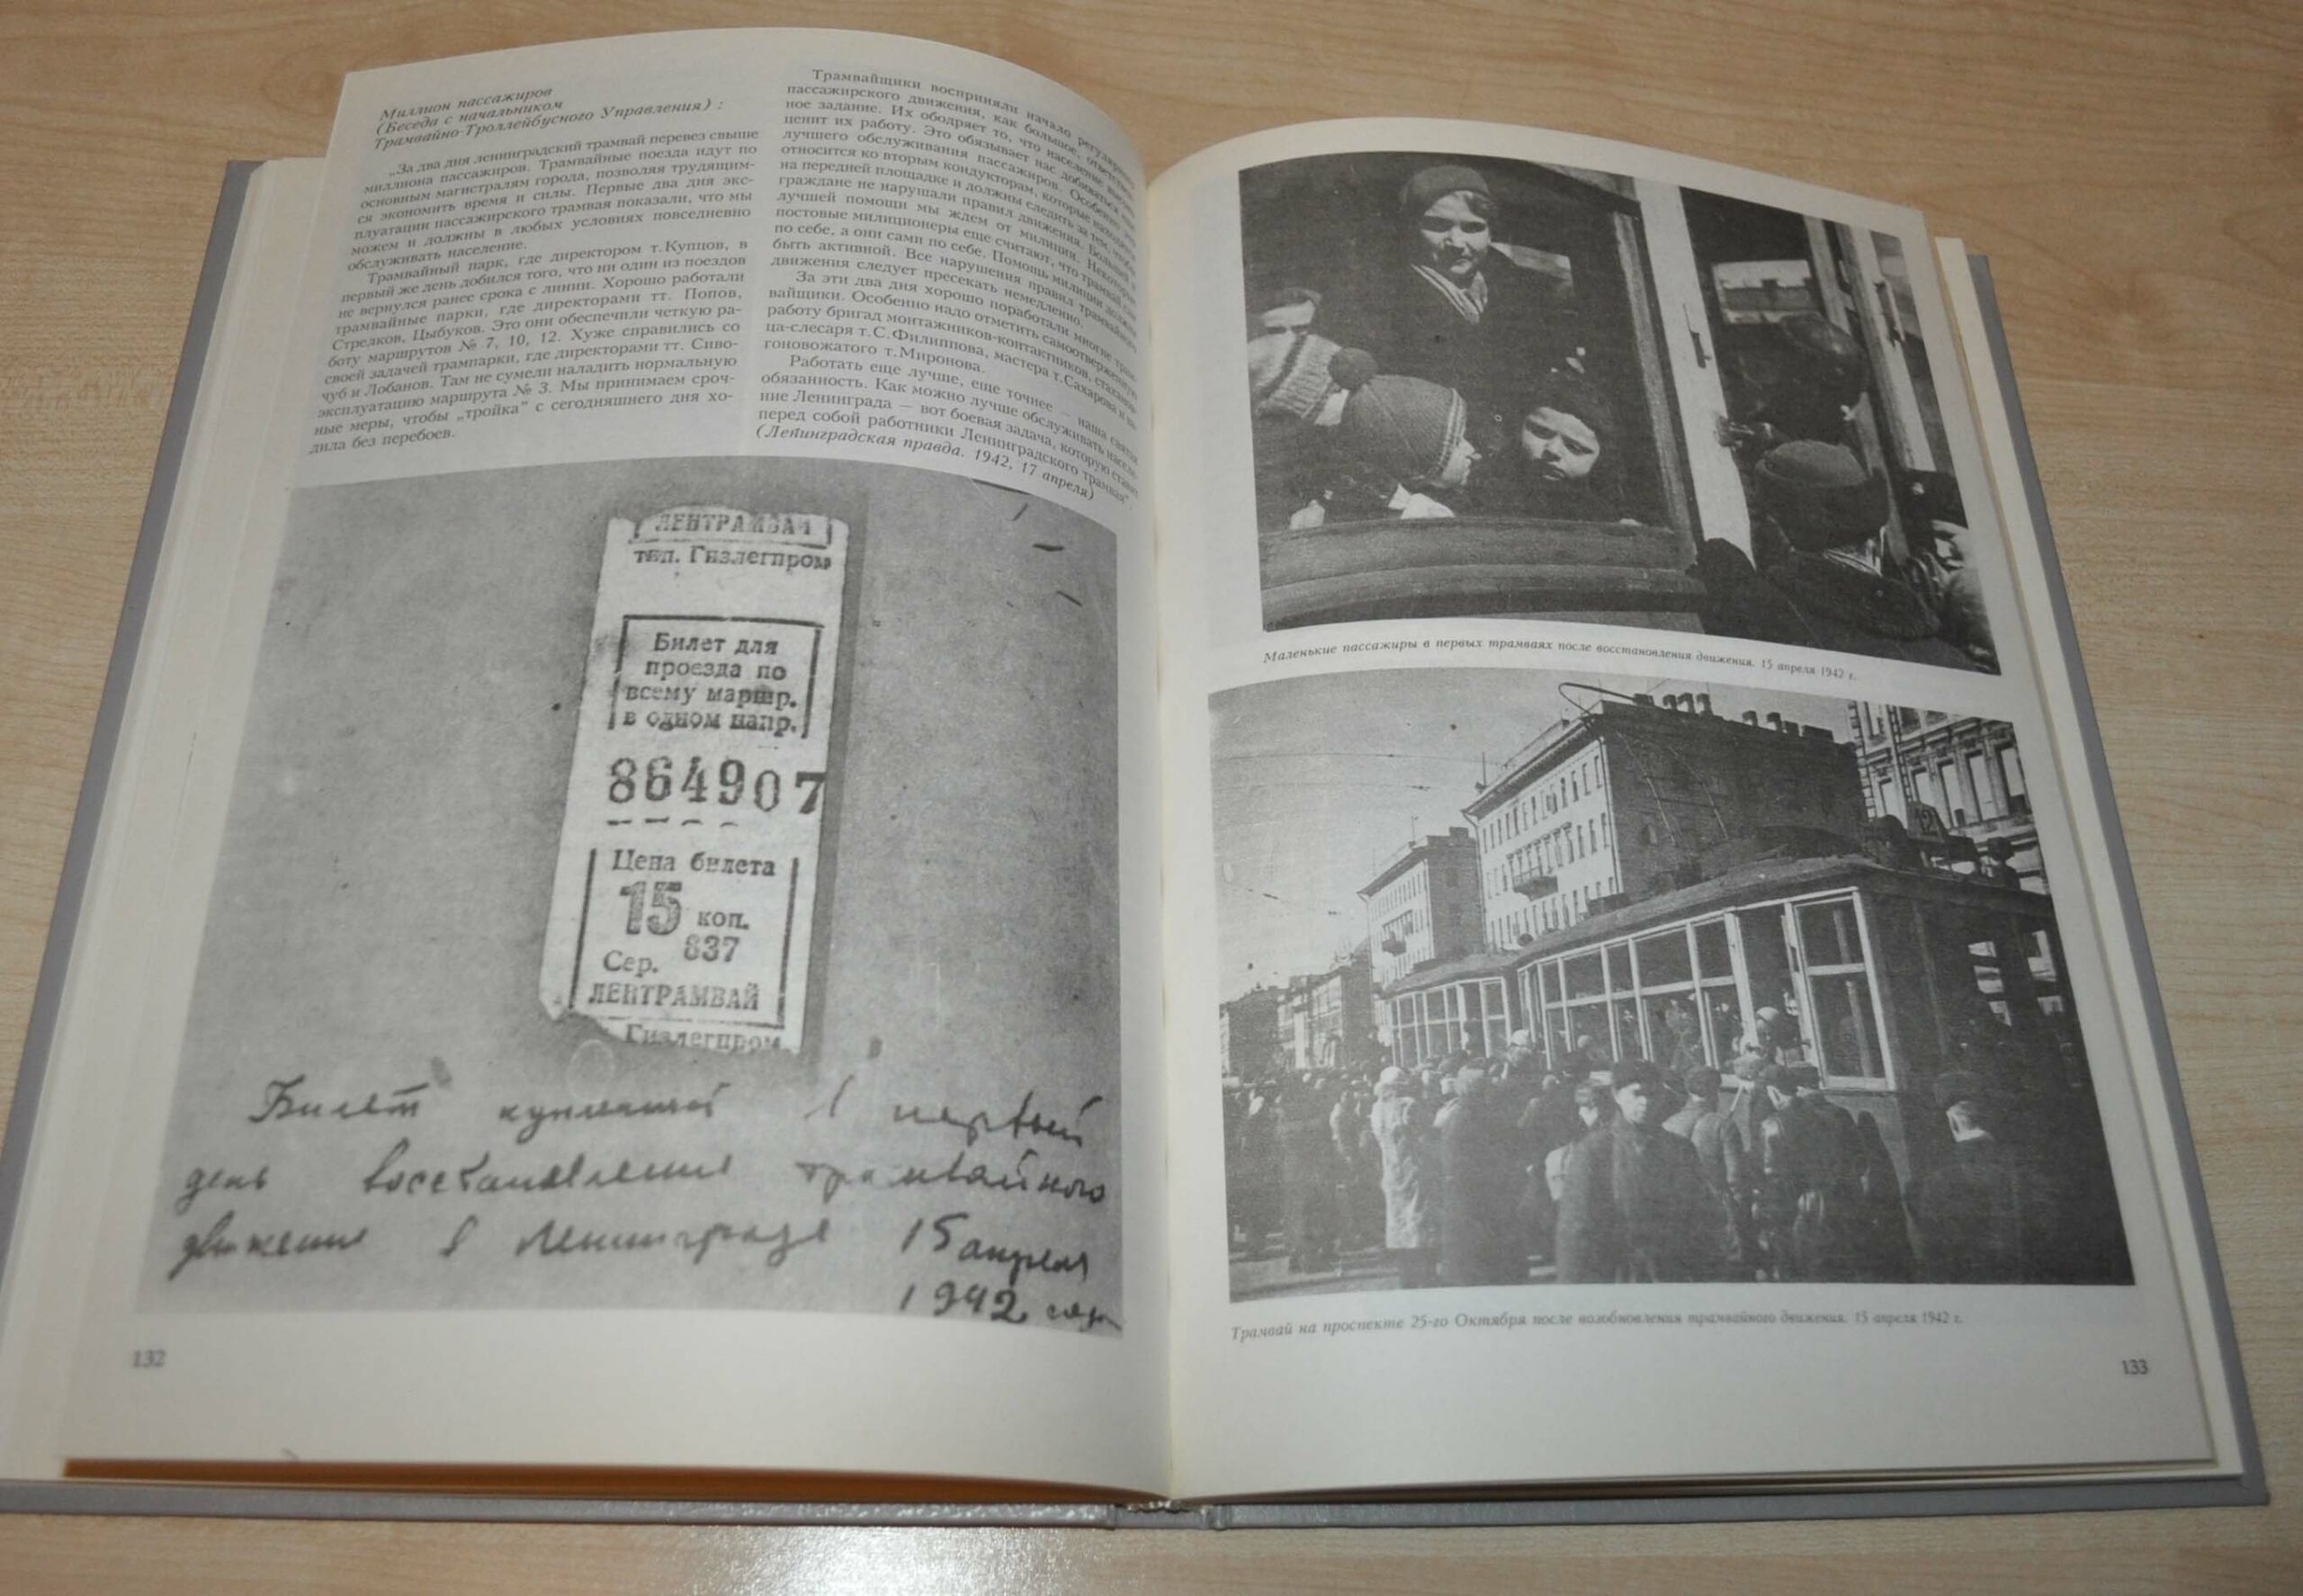 Миллион пассажиров
(Беседа с начальником
Трамвайно-Троллейбусного Управления) :
„За два дня ленинградский трамвай перевез свыше
миллиона пассажиров. Трамвайные поезда идут по
основным магистралям города, позволяя трудящим-
ся экономить время и силы. Первые два дня экс-
плуатации пассажирского трамвая показали, что мы
можем и должны в любых условиях повседневно
обслуживать население.
Трамвайный парк, где директором т. Купцов, в
первый же день добился того, что ни один из поездов
не вернулся ранее срока с линии. Хорошо работали
трамвайные парки, где директорами тт. Попов,
Стрелков, Цыбуков. Это они обеспечили четкую ра-
боту маршрутов № 7, 10, 12. Хуже справились со
своей задачей трампарки, где директорами тт. Сиво-
чуб и Лобанов. Там не сумели наладить нормальную
эксплуатацию маршрута № 3. Мы принимаем сроч-
ные меры, чтобы „тройка" с сегодняшнего дня хо-
дила без перебоев.
Трамвайщики восприняли начало регулярного
пассажирского движения, как большое, ответствен-
ное задание. Их ободряет то, что население высоко
ценит их работу. Это обязывает нас добиваться
лучшего обслуживания пассажиров. Особенно это
относится ко вторым кондукторам, которые находятся
на передней площадке и должны следить за тем, чтобы
граждане не нарушали правил движения. Большей и
лучшей помощи мы ждем от милиции. Некоторые
постовые милиционеры еще считают, что трамвай сам
по себе, а они сами по себе. Помощь милиции должна
быть активной. Все нарушения правил трамвайного
движения следует пресекать немедленно.
За эти два дня хорошо поработали многие трам-
вайщики. Особенно надо отметить самоотверженную
работу бригад монтажников-контактников, стаханов-
ца-слесаря т. С. Филиппова, мастера т. Сахарова и ва-
гоновожатого т. Миронова.
Работать еще лучше, еще точнее — наша святая
обязанность. Как можно лучше обслуживать населе-
ние Ленинграда — вот боевая задача, которую ставят
перед собой работники Ленинградского трамвая"
(Ленинградская правда. 1942, 17 апреля)
ЛЕНТРАМВАЙ
тип. Гизлегпром
Билет для
проезда по
всему маршр.
в одном напр.
864907
Цена билета
15 коп.
Сер. 837
ЛЕНТРАМВАЙ
Гизлегпром
Билет купленный в первый
день восстановления трамвайного
движения в Ленинграде 15 апреля
1942 года
132
Маленькие пассажиры в первых трамваях после восстановления движения. 15 апреля 1942 г.
12
Трамвай на проспекте 25-го Октября после возобновления трамвайного движения. 15 апреля 1942 г.
133